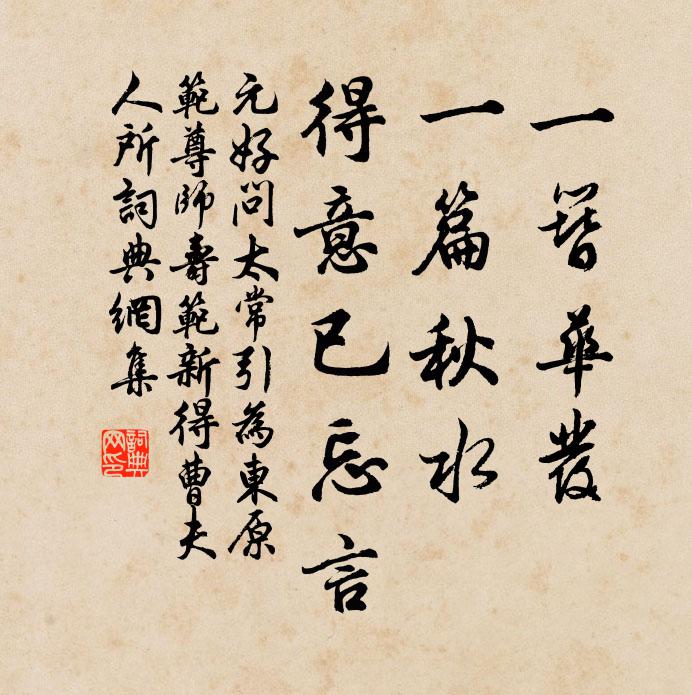 一簪華發
一篇秋水
得意已忘言
元好問太常引為東原
範尊師壽範新得曹夫
人所詞典網集
詞典网印